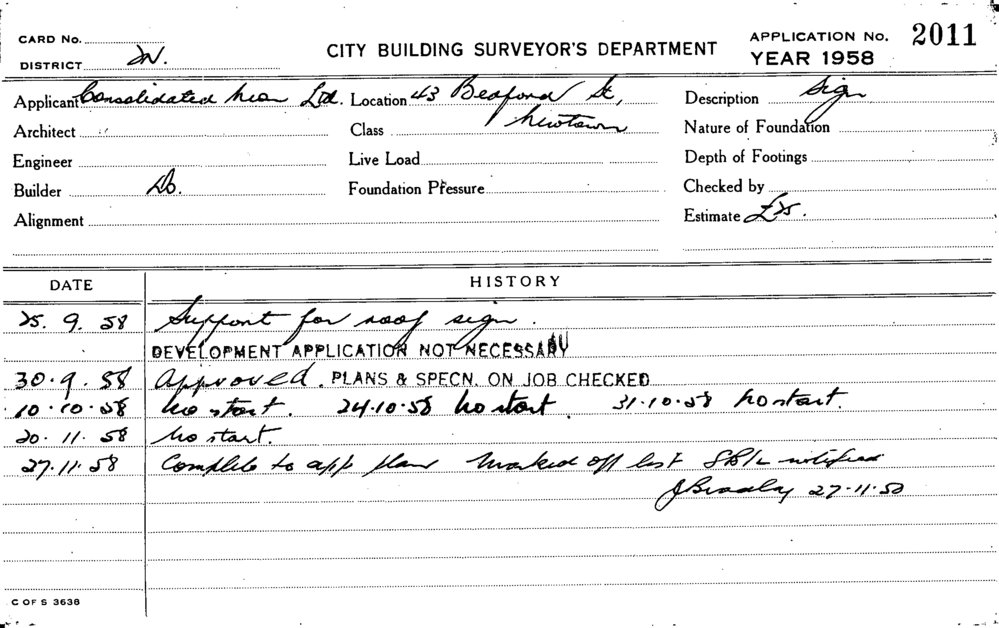 CARD No. CITY BUILDING SURVEYOR'S DEPARTMENT APPLICATION No. 2011
DISTRICT N. YEAR 1958
Applicant Consolidated Neon Ltd. Location 43 Bedford St, Newtown Description Sign
Architect Class Nature of Foundation
Engineer Live Load Depth of Footings
Builder Do. Foundation Pressure Checked by
Alignment Estimate £
DATE HISTORY
25. 9. 58 Support for roof sign.
DEVELOPMENT APPLICATION NOT NECESSARY
30. 9. 58 Approved. PLANS & SPECN. ON JOB CHECKED
10. 10. 58 No start. 24.10.58 No start. 31.10.58 No start.
20. 11. 58 No start.
27. 11. 58 Complete to app plan Marked off list notified
J Bradley 27.11.58
C OF S 3636